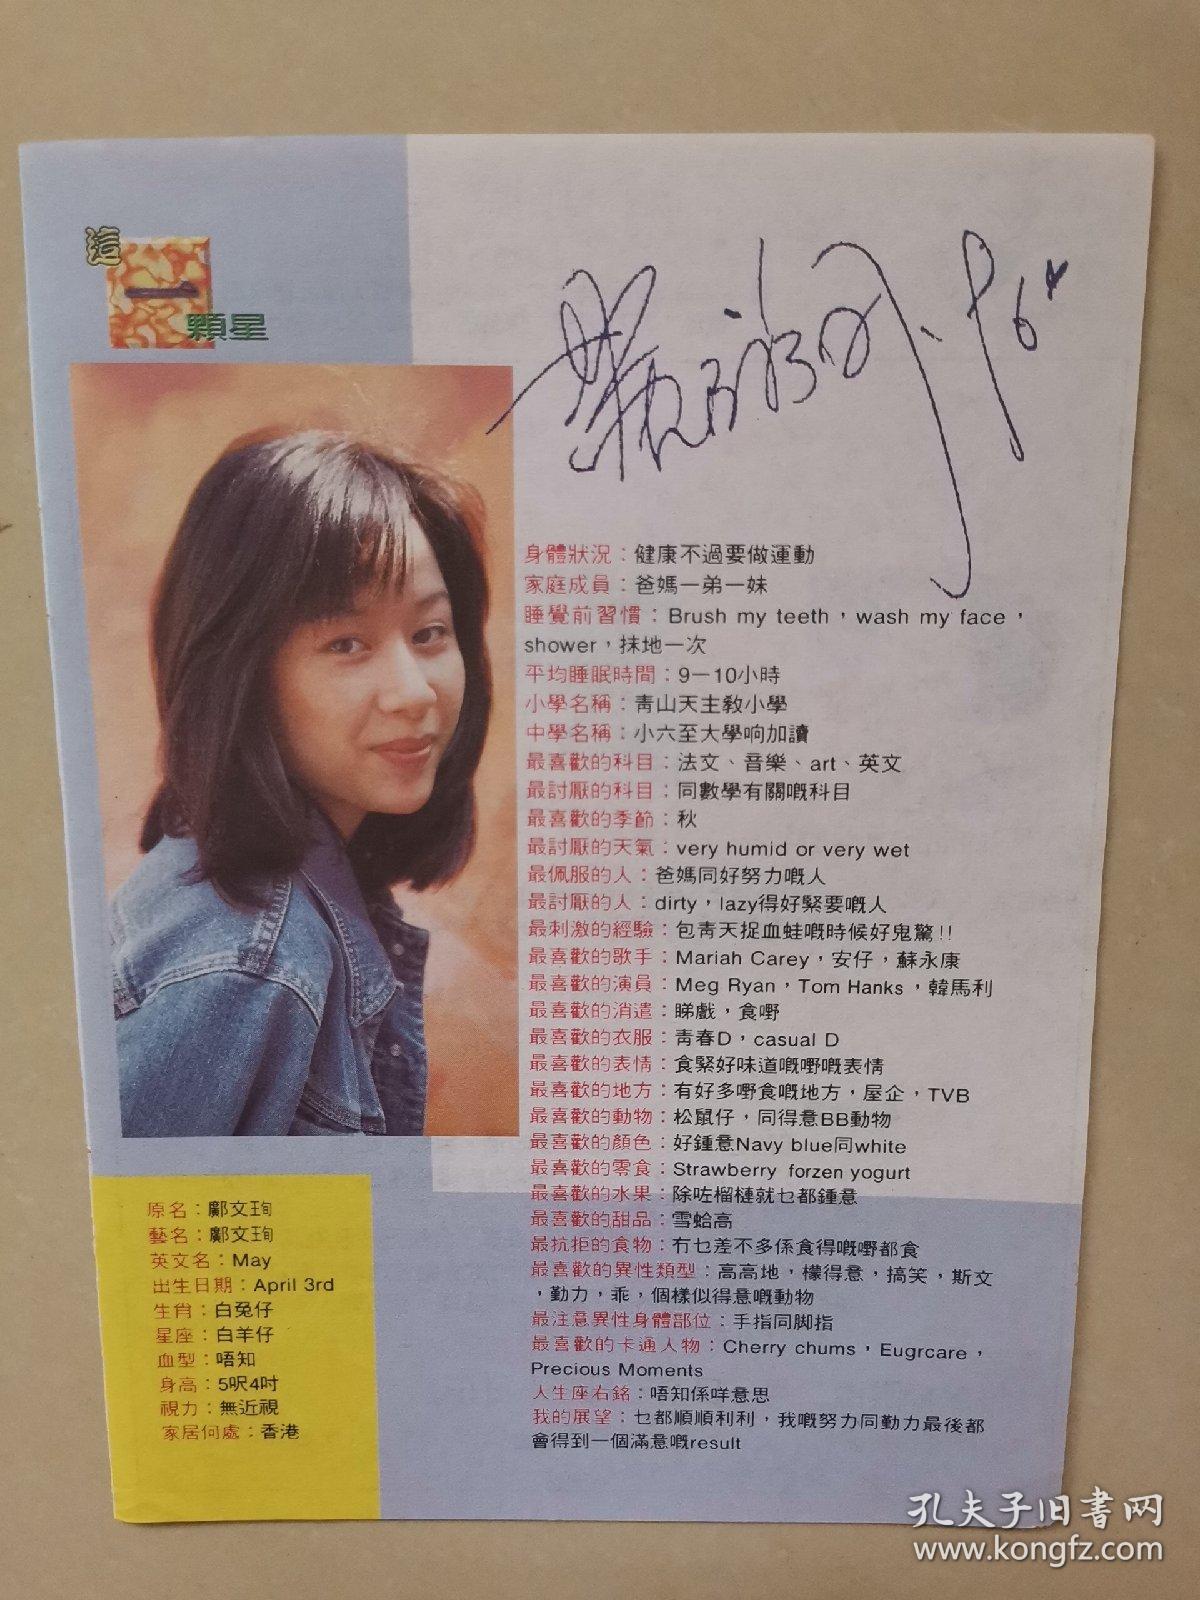 這
一
顆星
'96
身體狀況：健康不過要做運動
家庭成員：爸媽一弟一妹
睡覺前習慣：Brush my teeth，wash my face，
shower，抹地一次
平均睡眠時間：9－10小時
小學名稱：青山天主教小學
中學名稱：小六至大學响加讀
最喜歡的科目：法文、音樂、art、英文
最討厭的科目：同數學有關嘅科目
最喜歡的季節：秋
最討厭的天氣：very humid or very wet
最佩服的人：爸媽同好努力嘅人
最討厭的人：dirty，lazy得好緊要嘅人
最刺激的經驗：包青天捉血蛙嘅時候好鬼驚!!
最喜歡的歌手：Mariah Carey，安仔，蘇永康
最喜歡的演員：Meg Ryan，Tom Hanks，韓馬利
最喜歡的消遣：睇戲，食嘢
最喜歡的衣服：青春D，casual D
最喜歡的表情：食緊好味道嘅嘢嘅表情
最喜歡的地方：有好多嘢食嘅地方，屋企，TVB
最喜歡的動物：松鼠仔，同得意BB動物
最喜歡的顏色：好鍾意Navy blue同white
最喜歡的零食：Strawberry forzen yogurt
最喜歡的水果：除咗榴槤就乜都鍾意
最喜歡的甜品：雪蛤高
最抗拒的食物：冇乜差不多係食得嘅嘢都食
最喜歡的異性類型：高高地，檬得意，搞笑，斯文
，勤力，乖，個樣似得意嘅動物
最注意異性身體部位：手指同脚指
最喜歡的卡通人物：Cherry chums，Eugrcare，
Precious Moments
人生座右銘：唔知係咩意思
我的展望：乜都順順利利，我嘅努力同勤力最後都
會得到一個滿意嘅result
原名：鄺文珣
藝名：鄺文珣
英文名：May
出生日期：April 3rd
生肖：白兔仔
星座：白羊仔
血型：唔知
身高：5呎4吋
視力：無近視
家居何處：香港
孔夫子旧书网
www.kongfz.com